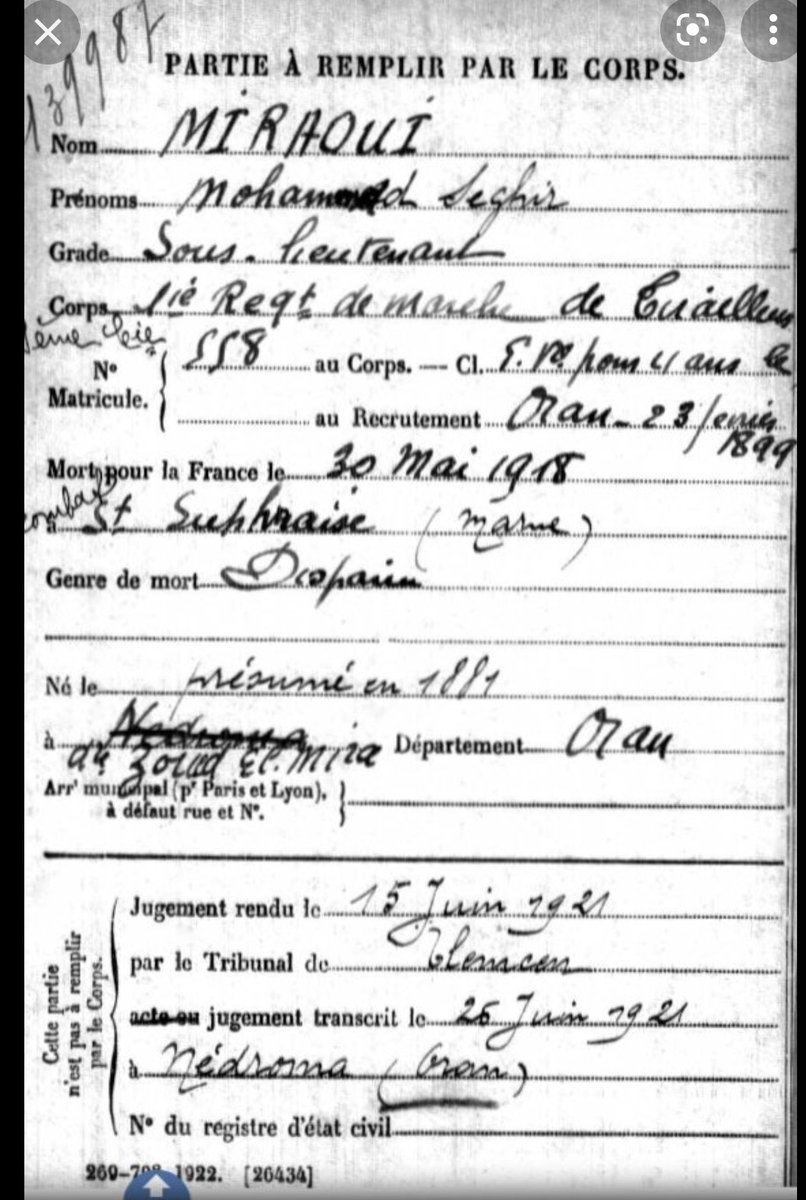 139987
PARTIE À REMPLIR PAR LE CORPS.
Nom MIRAOUI
Prénoms Mohammed Seghir
Grade Sous-lieutenant
Corps 1er Regt de marche de Tirailleurs
N° Matricule. { 558 au Corps. — Cl. E. Vre pour 4 ans le
au Recrutement Oran - 23 février
1899
Mort pour la France le 30 Mai 1918
à St Euphraise (Marne)
Genre de mort Disparu
Né le présumé en 1881
à Nedroma Département Oran
du Zoud El. Mira
Arrt municipal (pr Paris et Lyon),
à défaut rue et N°.
Cette partie n'est pas à remplir par le Corps.
Jugement rendu le 15 Juin 1921
par le Tribunal de Tlemcen
acte ou jugement transcrit le 26 Juin 1921
à Nédroma (Oran)
N° du registre d'état civil
269-708 1922. [26434]